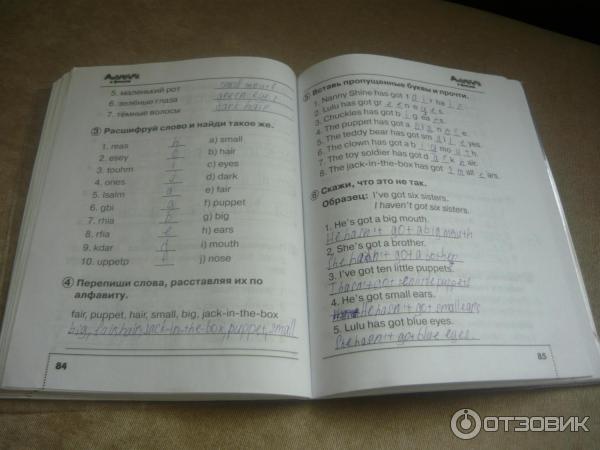 5. маленький рот small mouth
6. зелёные глаза green eyes
7. тёмные волосы dark hair
3 Расшифруй слово и найди такое же.
1. reas h a) small
2. esey b) hair
3. touhm i c) eyes
4. ones d) dark
5. lsalm a e) fair
6. gbi g f) puppet
7. rhia b g) big
8. rfia e h) ears
9. kdar d i) mouth
10. uppetp f j) nose
4 Перепиши слова, расставляя их по
алфавиту.
fair, puppet, hair, small, big, jack-in-the-box
big, fair, hair, jack-in-the-box, puppet, small
84
5 Вставь пропущенные буквы и прочти.
1. Nanny Shine has got f a i r ha i r.
2. Lulu has got gr e e n e y e s.
3. Chuckles has got b i g ea r s.
4. The puppet has got a
5. The teddy bear has got sm a l l e yes.
6. The clown has got a b i g m o u t h.
7. The toy soldier has got d a r k h air.
8. The jack-in-the-box has got s m all e ars.
6 Скажи, что это не так.
Образец: I've got six sisters.
I haven't got six sisters.
1. He's got a big mouth.
He hasn't got a big mouth
2. She's got a brother.
She hasn't got a brother
3. I've got ten little puppets.
I hasn't got ten little puppets
4. He's got small ears.
He hasn't got small ears
5. Lulu has got blue eyes.
She hasn't got blue eyes
85
ОТЗОВИК